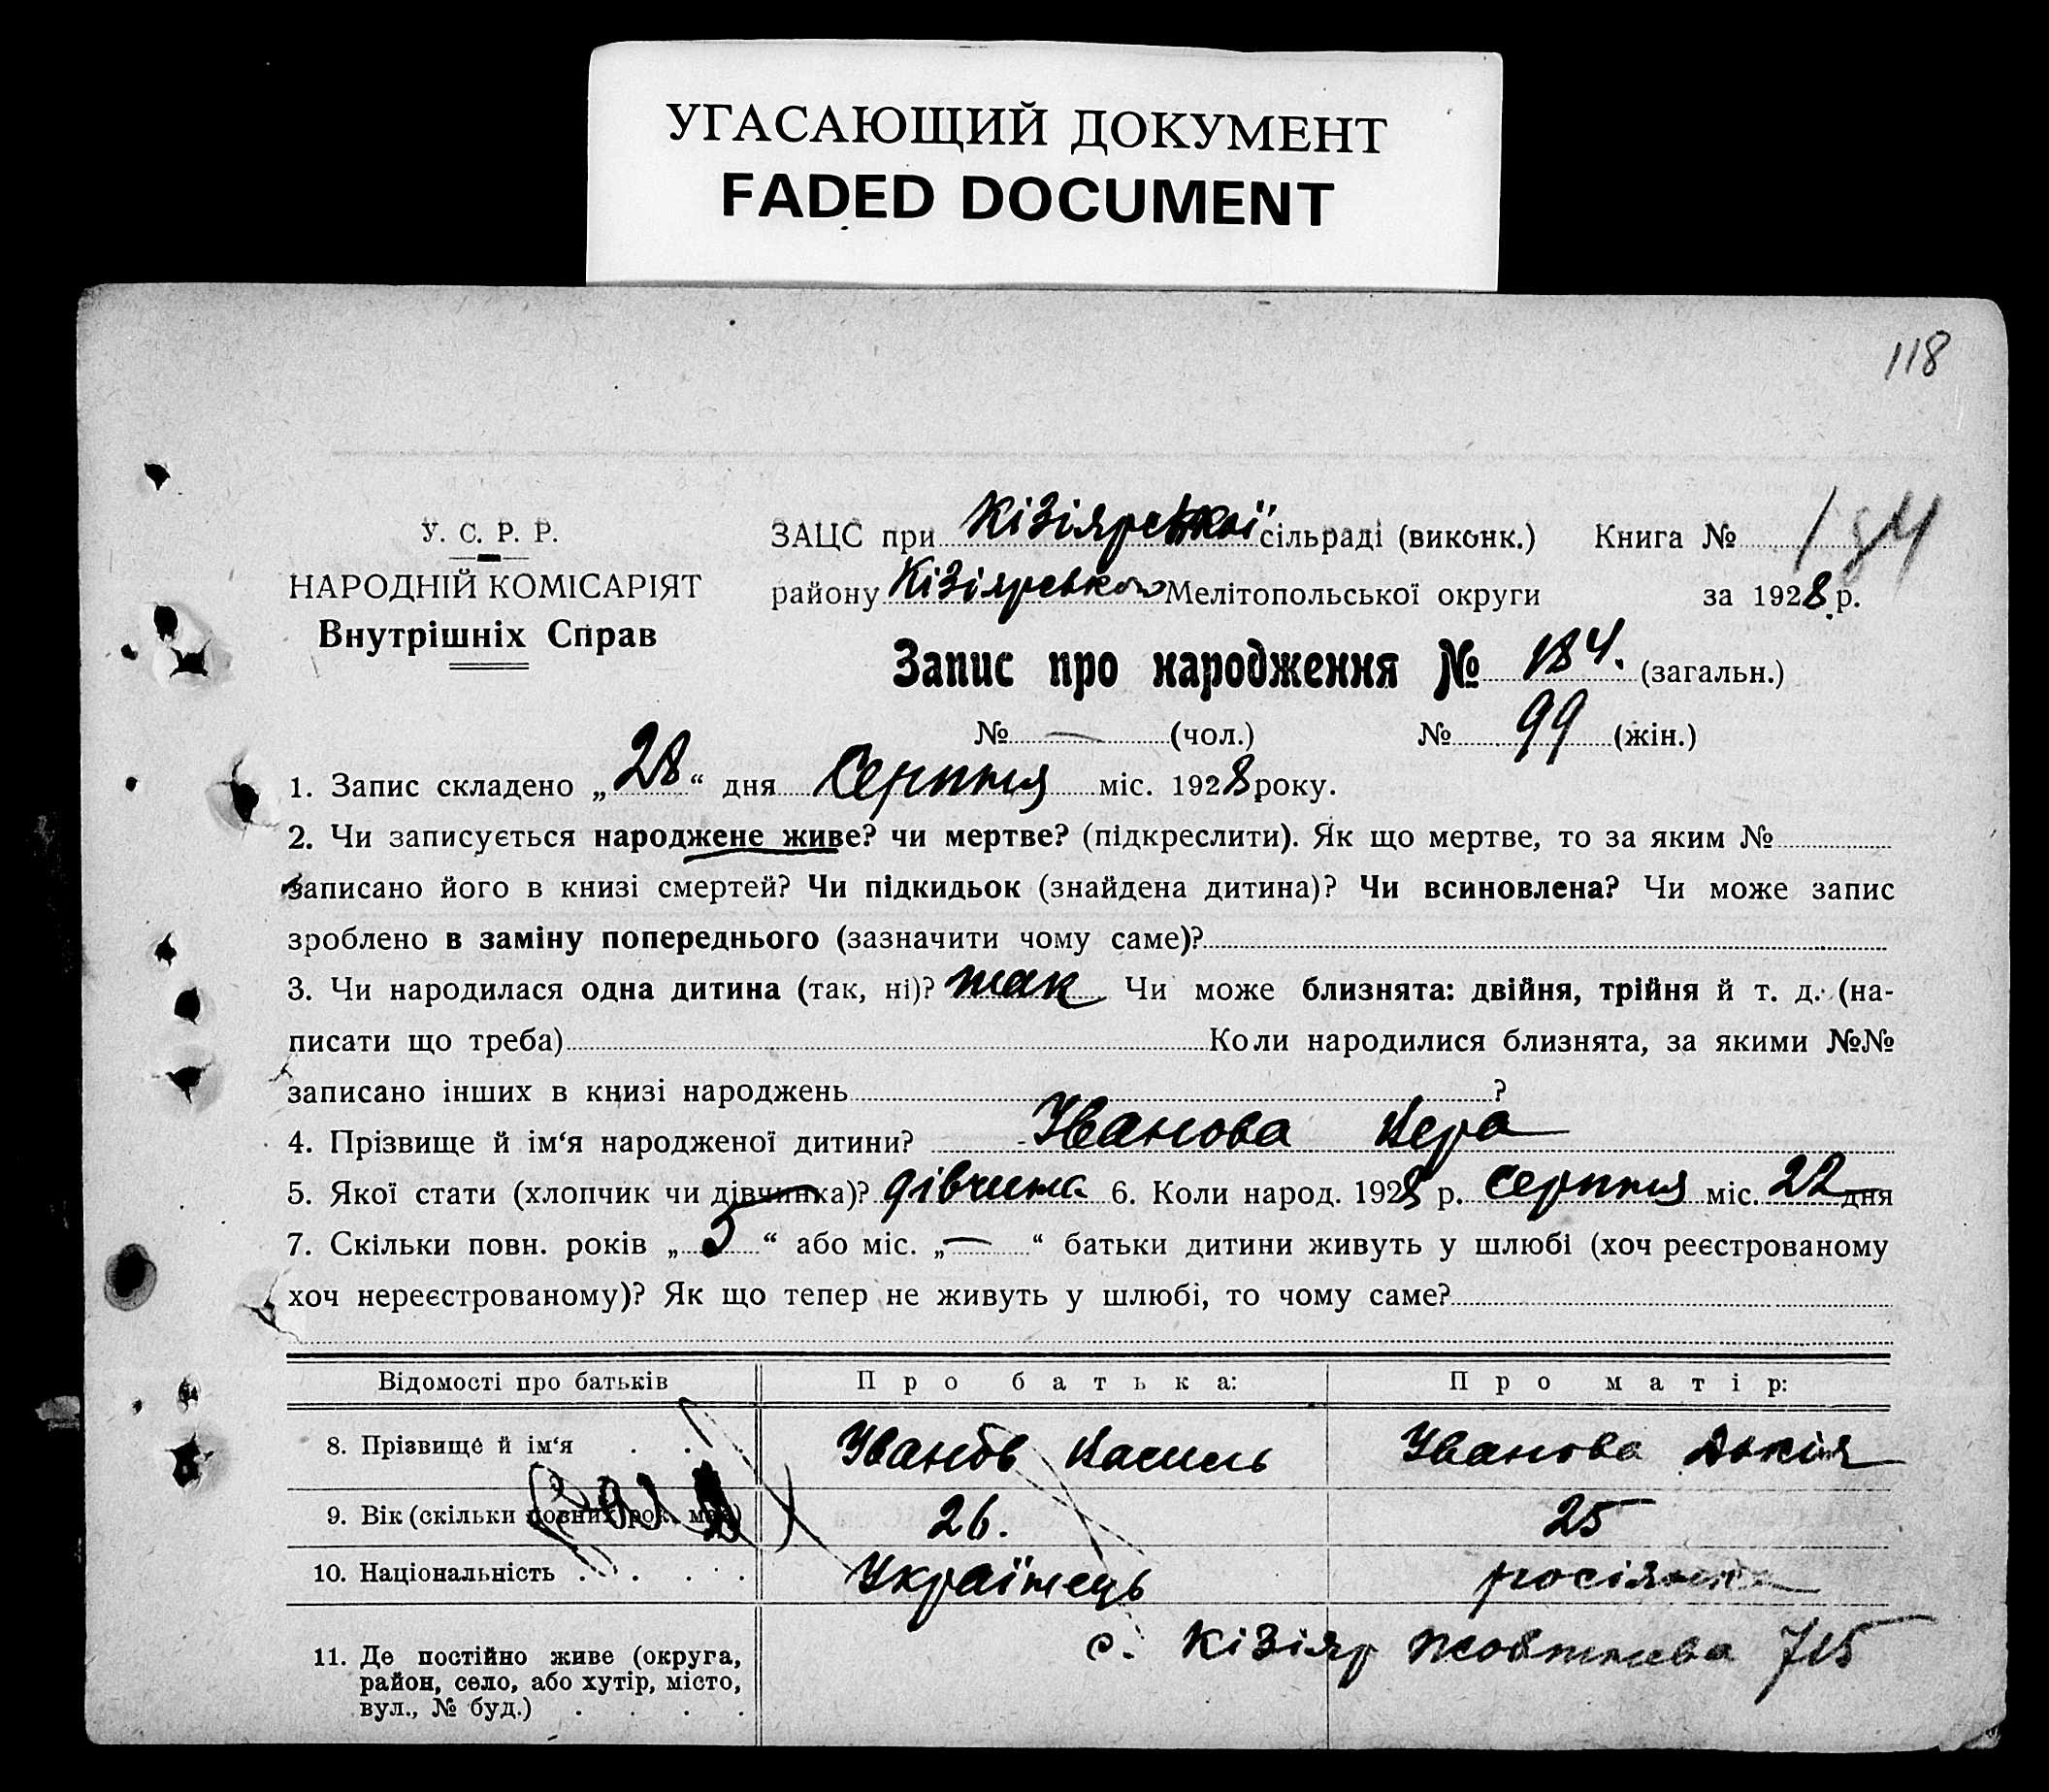 УГАСАЮЩИЙ ДОКУМЕНТ
FADED DOCUMENT
118
У. С. Р. Р.
НАРОДНІЙ КОМІСАРІЯТ
Внутрішніх Справ
ЗАЦС при Кізіярській сільраді (виконк.) Книга № 184
району Кізіярського Мелітопольської округи за 1928 р.
Запис про народження № 184. (загальн.)
№ — (чол.) № 99 (жін.)
1. Запис складено „28“ дня Серпня міс. 1928 року.
2. Чи записується народжене живе? чи мертве? (підкреслити). Як що мертве, то за яким №
записано його в книзі смертей? Чи підкидьок (знайдена дитина)? Чи всиновлена? Чи може запис
зроблено в заміну попереднього (зазначити чому саме)?
3. Чи народилася одна дитина (так, ні)? так Чи може близнята: двійня, трійня й т. д. (на-
писати що треба) Коли народилися близнята, за якими №№
записано інших в книзі народжень ?
4. Прізвище й ім‘я народженої дитини? Іванова Вера
5. Якої стати (хлопчик чи дівчинка)? дівчина 6. Коли народ. 1928 р. серпня міс. 22 дня
7. Скільки повн. років „5“ або міс. „—“ батьки дитини живуть у шлюбі (хоч реєстрованому
хоч нереєстрованому)? Як що тепер не живуть у шлюбі, то чому саме?
Відомості про батьків Про батька: Про матір:
8. Прізвище й ім‘я . . Іванов Василь Іванова
9. Вік (скільки повних рок. має) 26. 25
10. Національність . . . . . Українець росіянка
11. Де постійно живе (округа,
район, село, або хутір, місто,
вул., № буд.) . . . .
с. Кізіяр Жовтнева 715